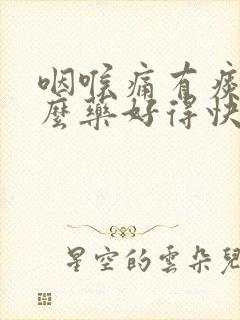 咽喉痛有痰
麼藥好得快
星空的雲朵兒